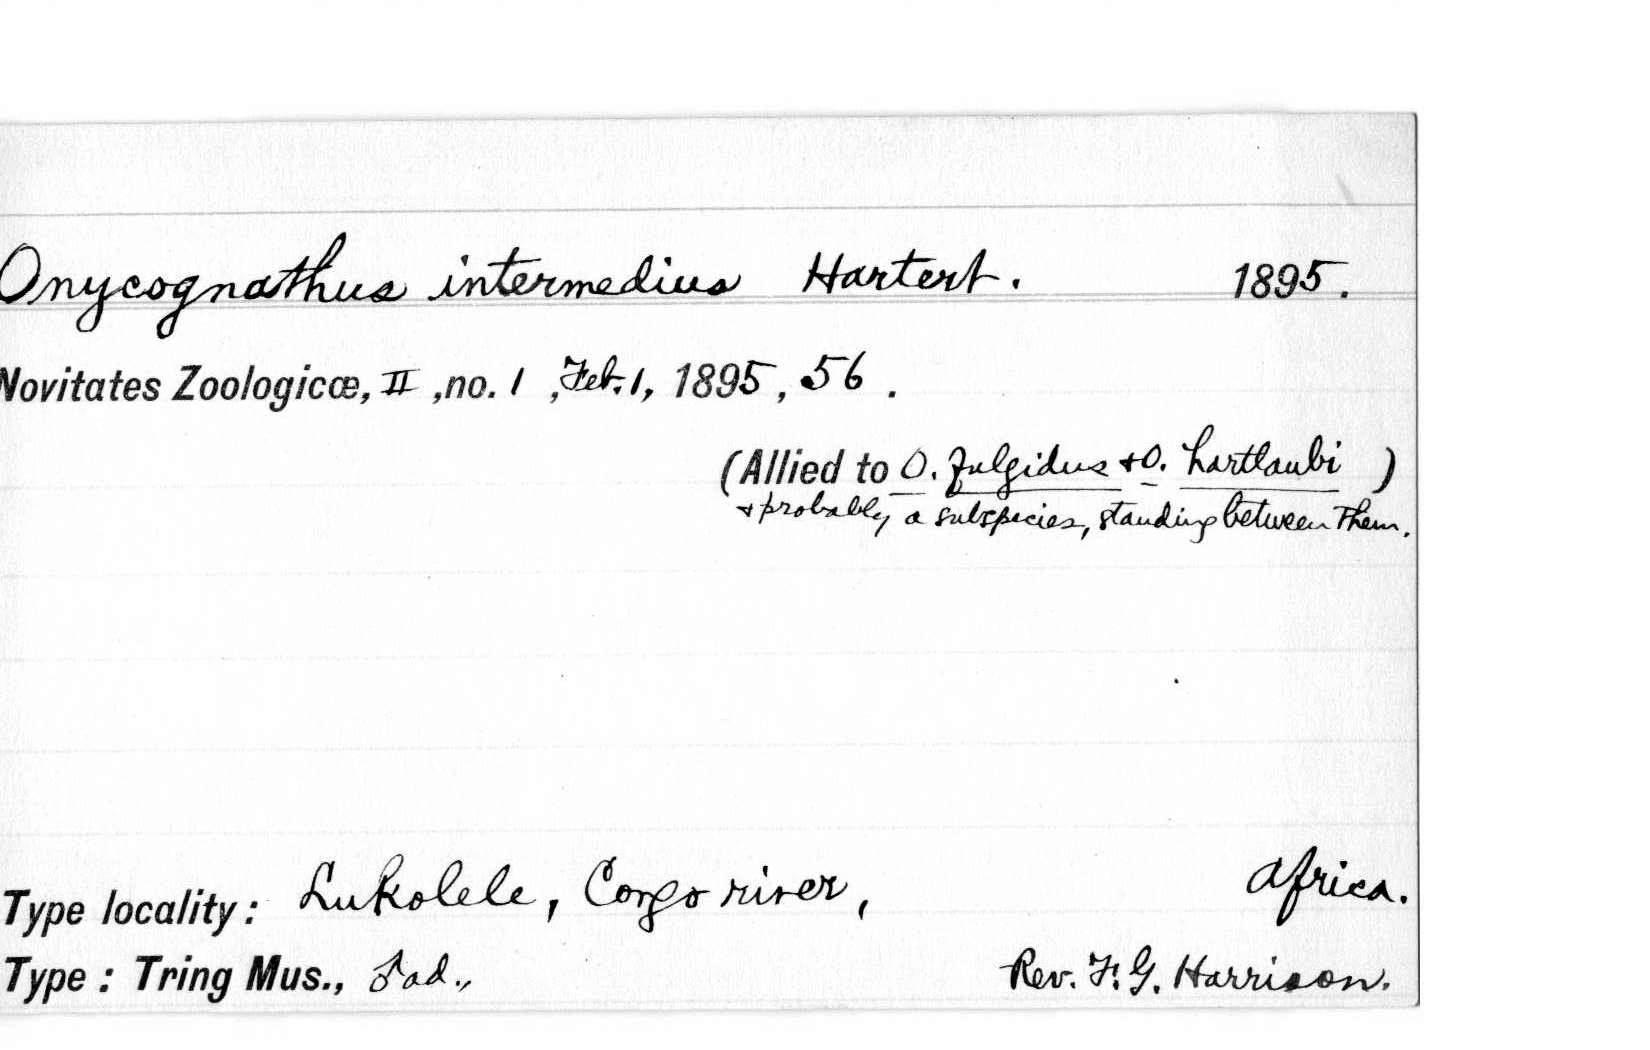 Onycognathus intermedius Hartert. 1895.
Novitates Zoologicæ, II, no. 1, Feb. 1, 1895, 56.
(Allied to O. fulgidus + O. hartlaubi)
+ probably a subspecies, standing between them.
Type locality: Lukolele, Congo river, Africa.
Type: Tring Mus., ♂ad., Rev. F. G. Harrison.